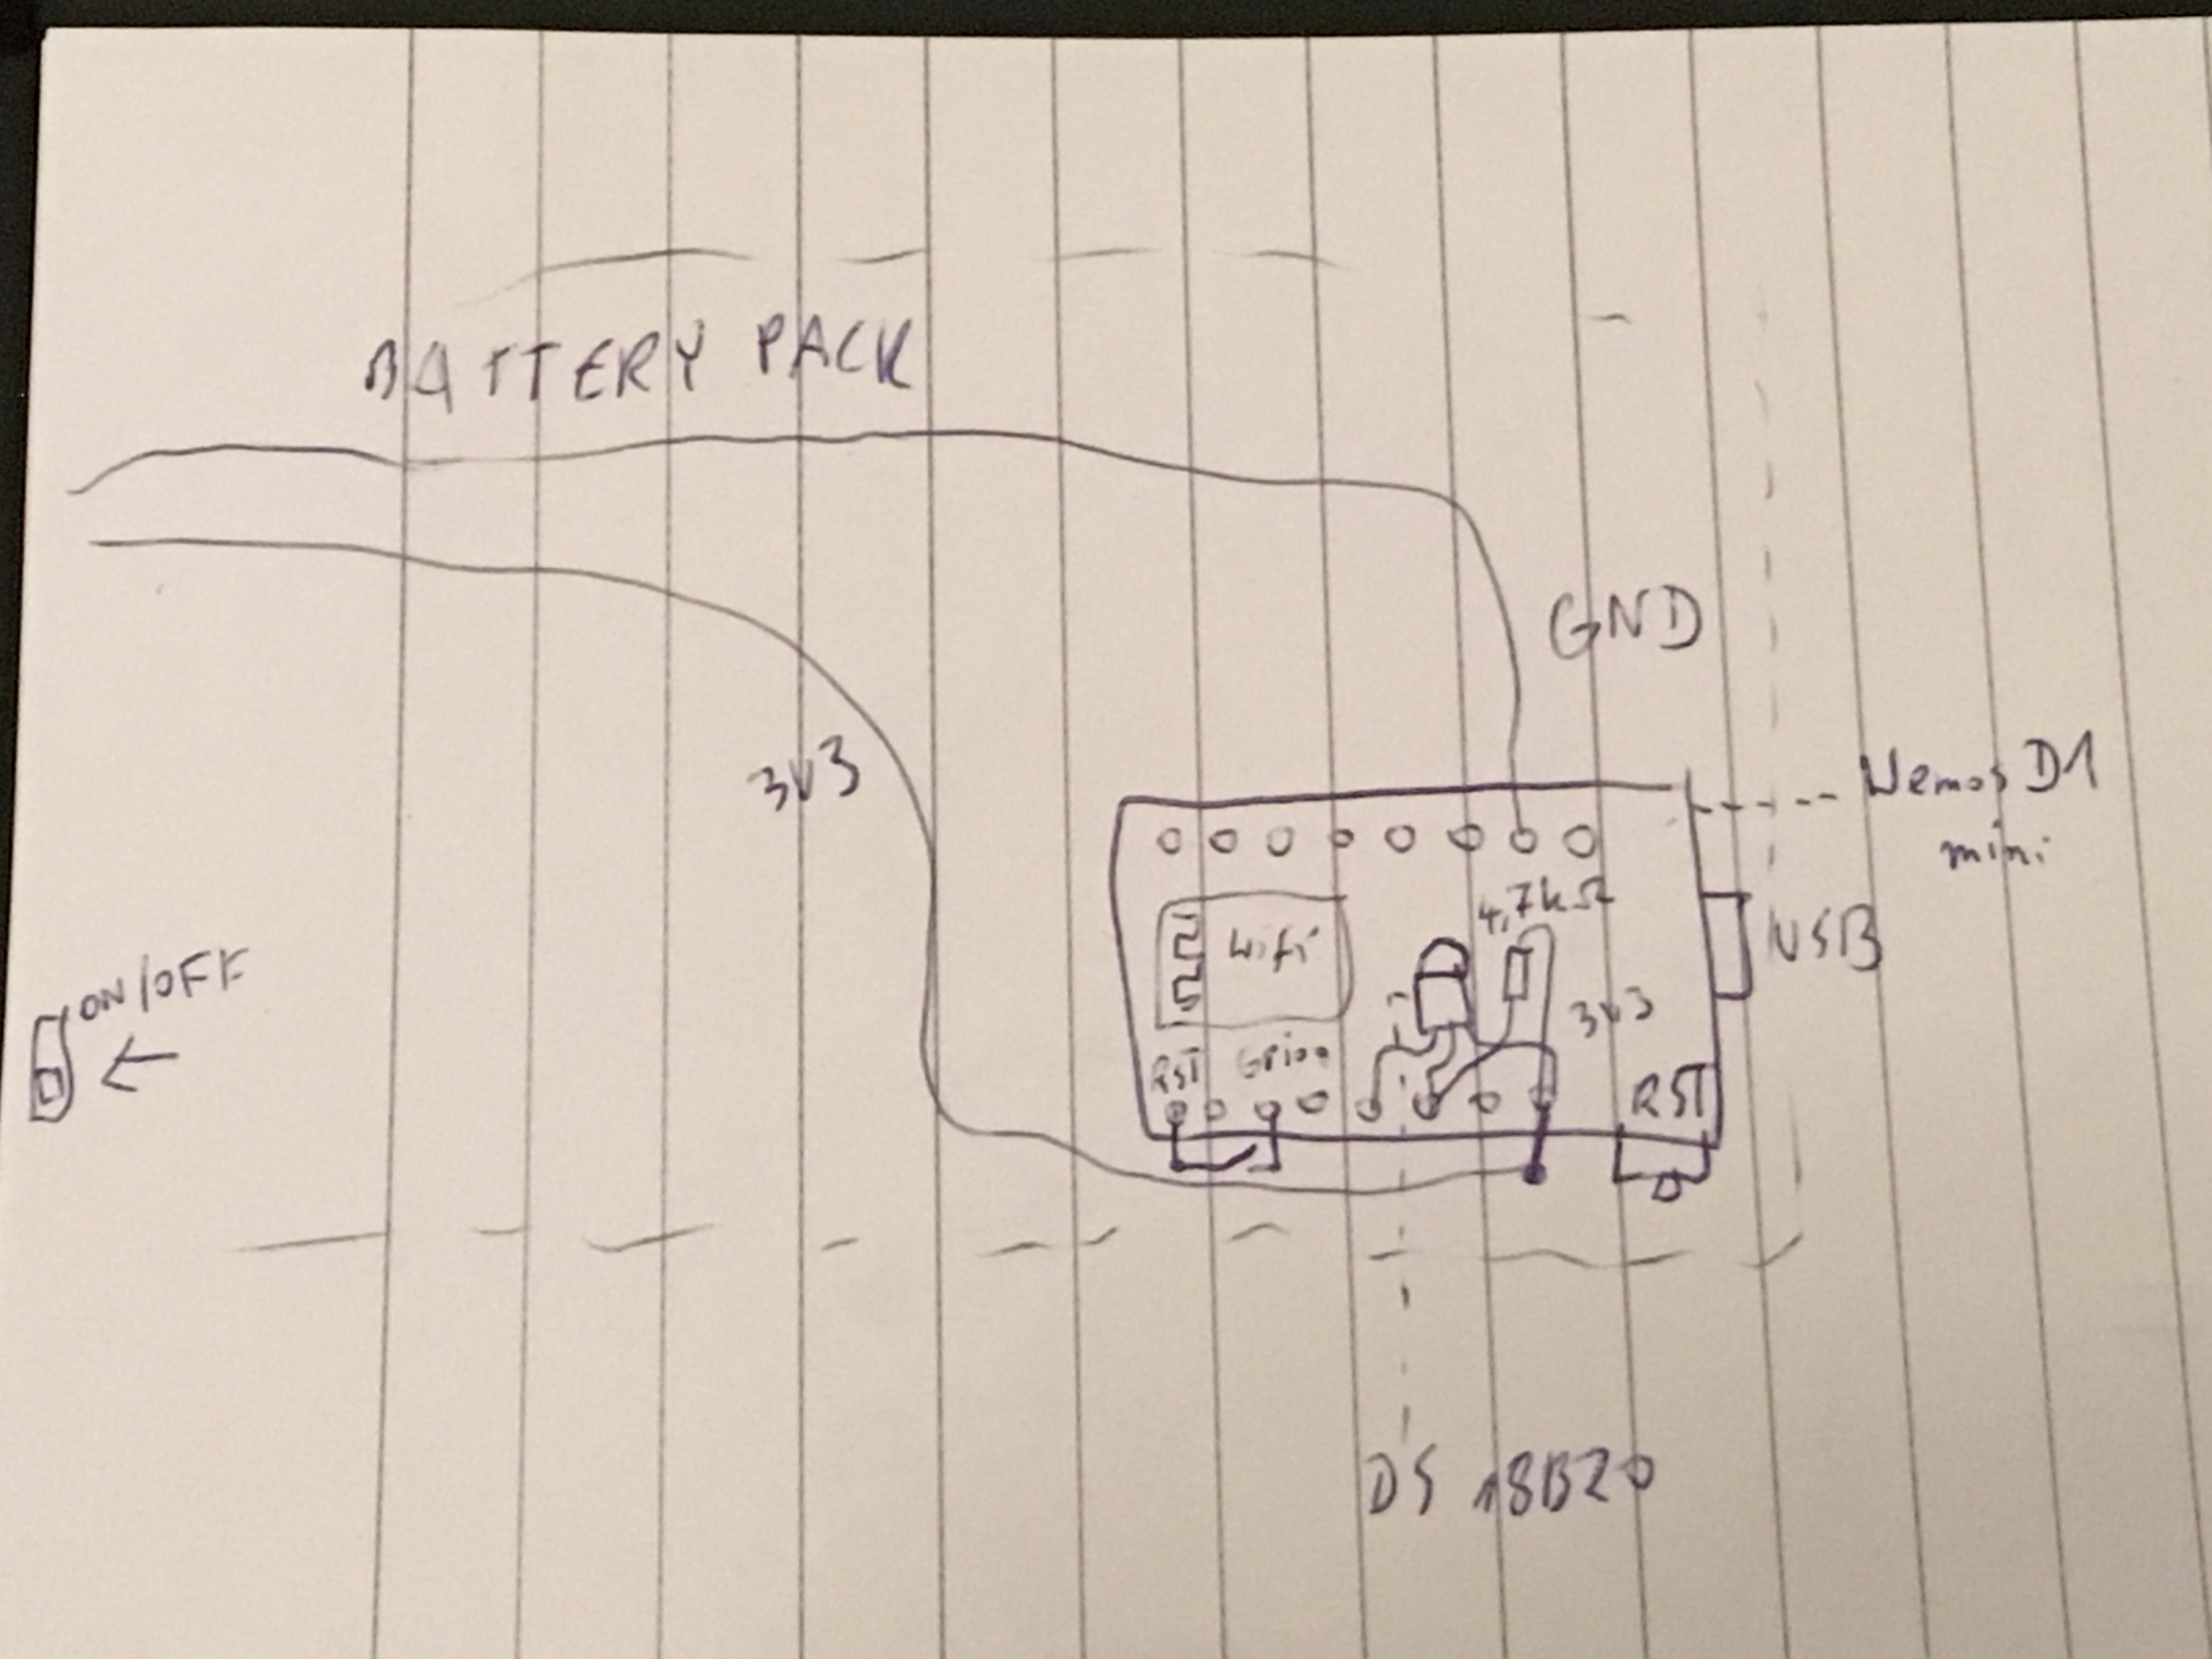 BATTERY PACK
GND
3V3
Wemos D1
mini
4,7kΩ
WiFi
USB
3V3
ON/OFF
RST
RST
DS 18B20